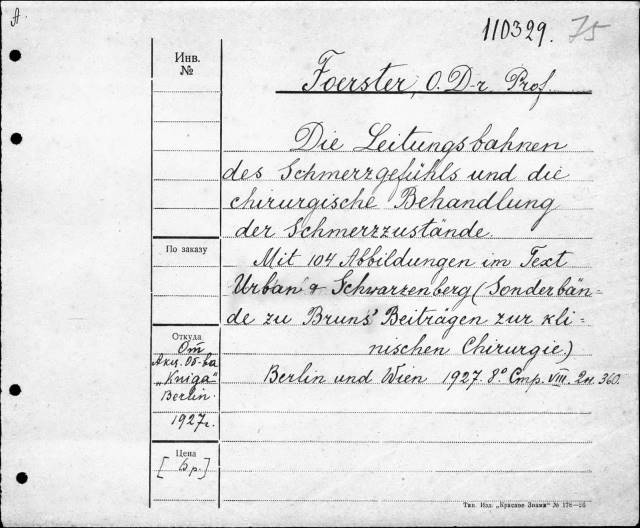 A
110329. 75
Инв.
№
Foerster, O. D-r. Prof.
Die Leitungsbahnen
des Schmerzgefühls und die
chirurgische Behandlung
der Schmerzzustände.
По заказу
Mit 104 Abbildungen im Text
Urban & Schwarzenberg (Sonderbän-
de zu Bruns' Beiträgen zur kli-
nischen Chirurgie.)
Откуда
От
Акц. Об-ва
„Kniga"
Berlin.
1927г.
Berlin und Wien 1927. 8° Стр. VIII. 2н. 360.
Цена
[ б.р.]
Тип. Изд. „Красное Знамя" № 178—26